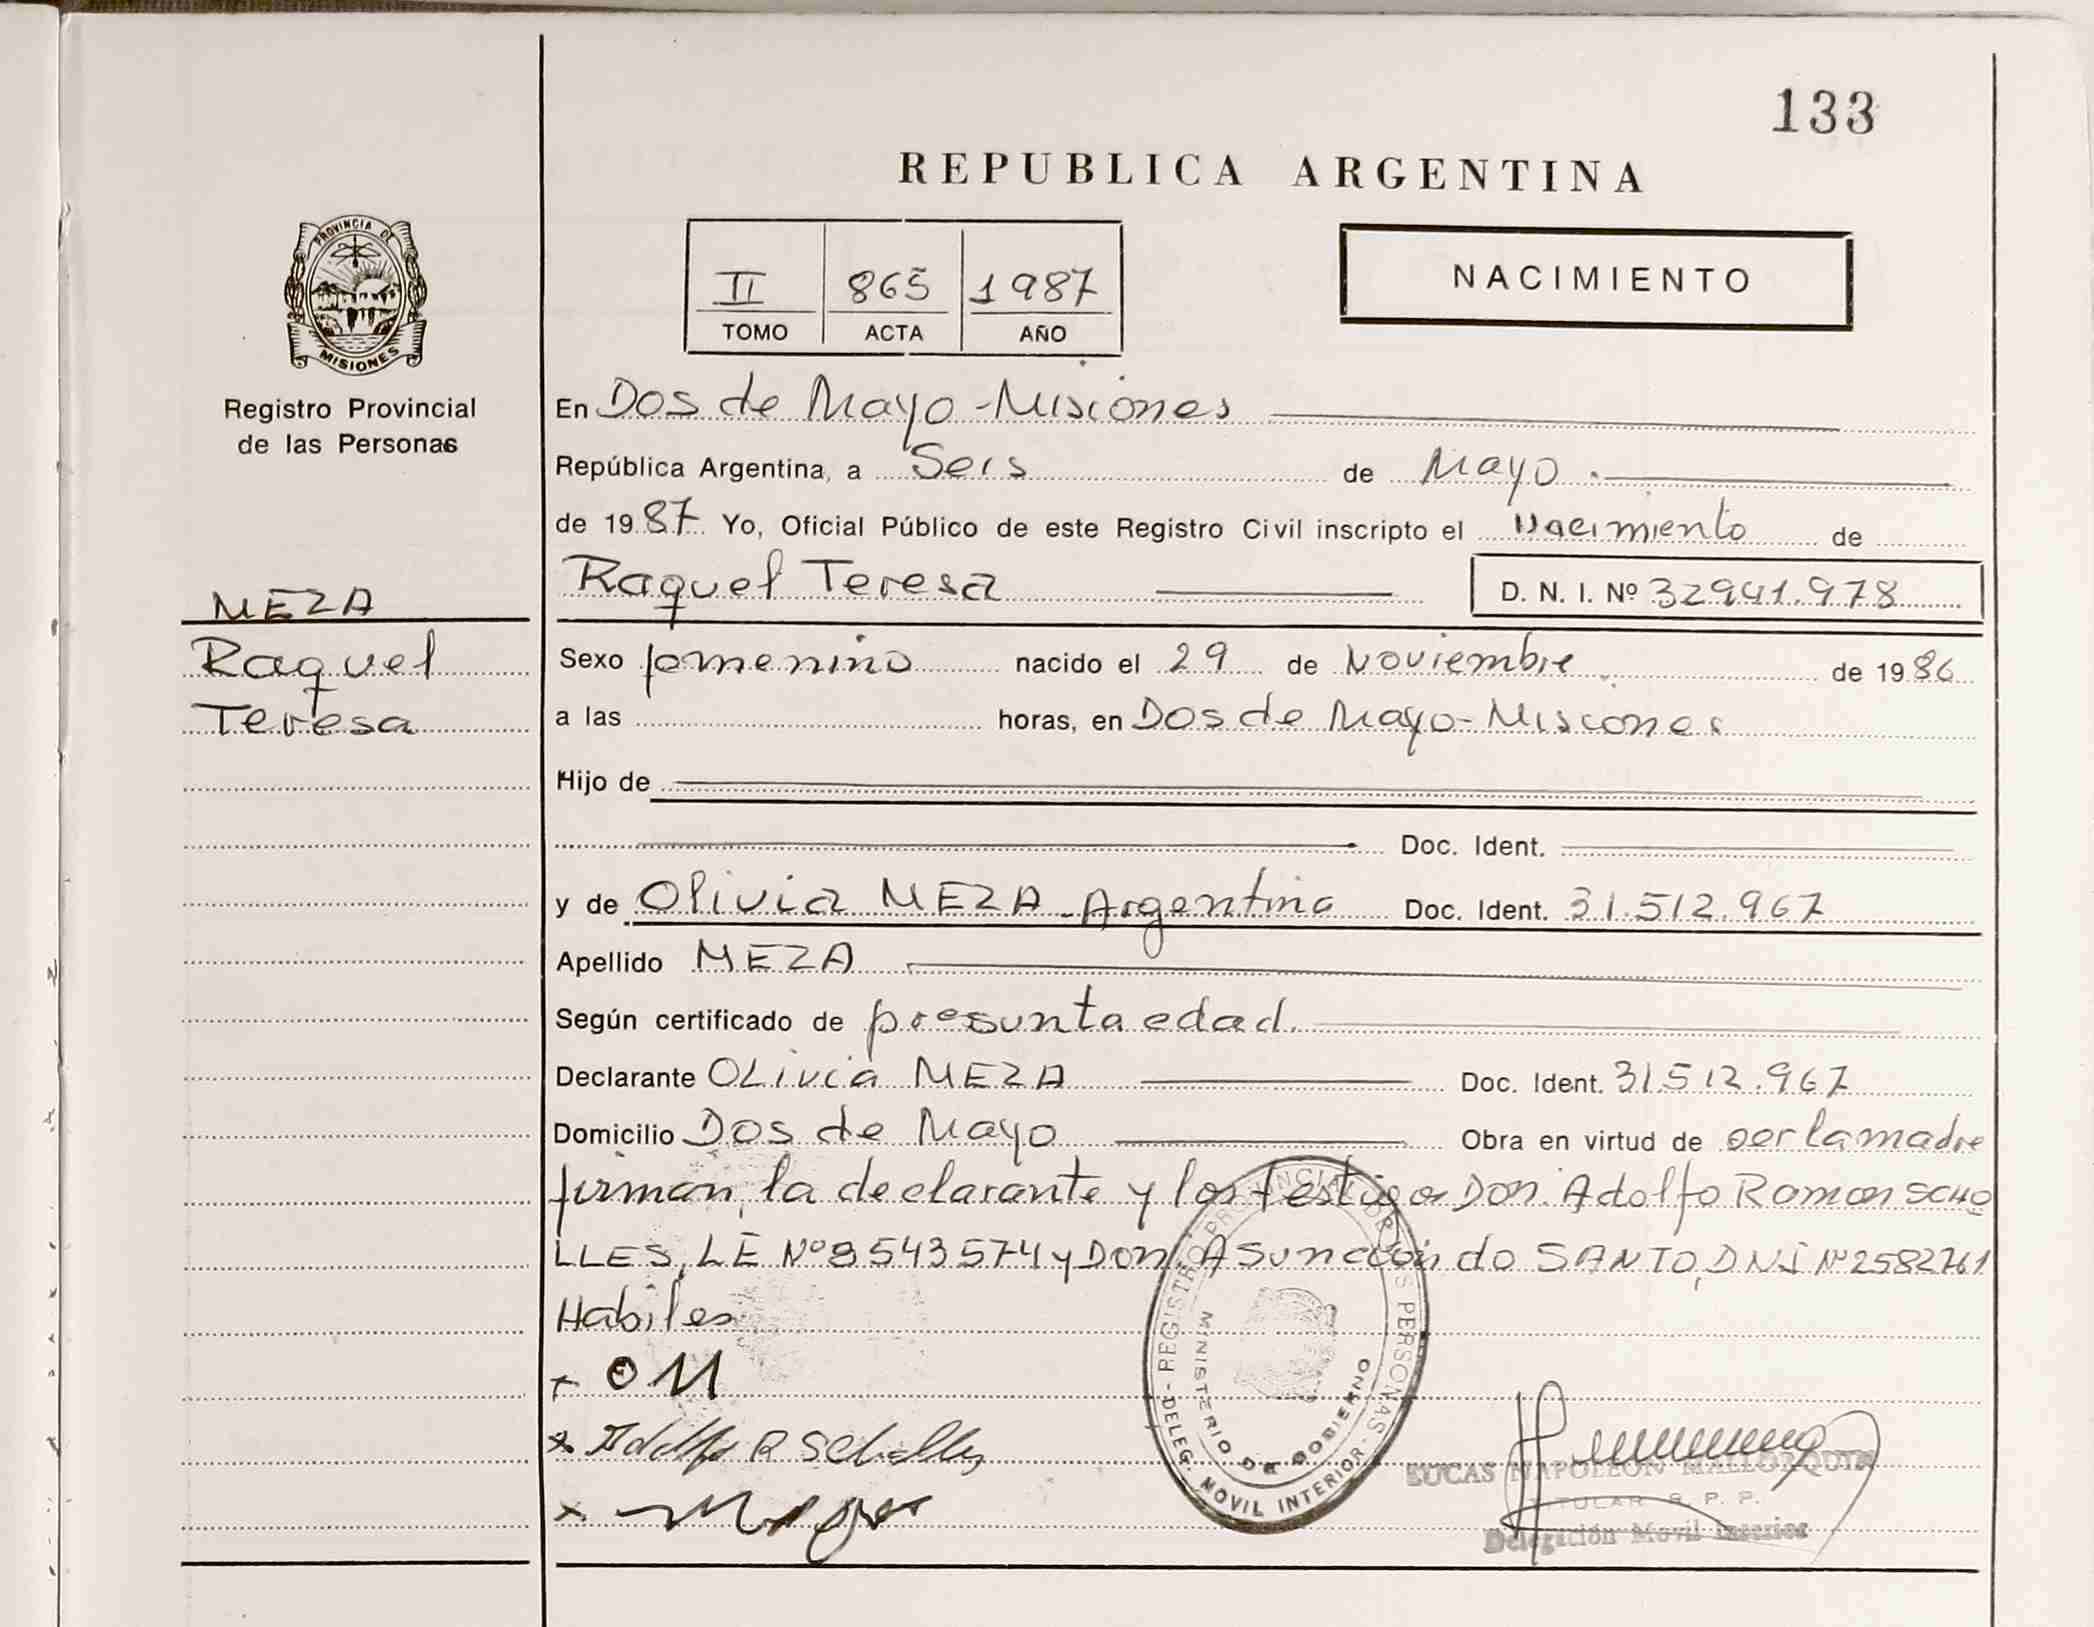 133
REPUBLICA ARGENTINA
PROVINCIA DE
MISIONES
Registro Provincial
de las Personas
II 865 1987
TOMO ACTA AÑO
NACIMIENTO
En Dos de Mayo - Misiones
República Argentina, a Seis de Mayo.
de 1987. Yo, Oficial Público de este Registro Civil inscripto el Nacimiento de
Raquel Teresa D. N. I. Nº 32941.978
MEZA
Raquel
Teresa
Sexo femenino nacido el 29 de Noviembre de 1986
a las horas, en Dos de Mayo - Misiones
Hijo de
Doc. Ident.
y de Olivia MEZA - Argentina Doc. Ident. 31.512.967
Apellido MEZA
Según certificado de presunta edad.
Declarante OLivia MEZA Doc. Ident. 31.512.967
Domicilio Dos de Mayo Obra en virtud de ser la madre
firman, la declarante y los testigos Don. Adolfo Ramon SCHO
LLES, LE Nº 8543574 y Don. Asunción do SANTO, DNI Nº 2582761
Habiles
x OM
x Adolfo R Scholles
x
REGISTRO PROVINCIAL DE LAS PERSONAS - DELEG. MOVIL INTERIOR -
MINISTERIO DE GOBIERNO
LUCAS NAPOLEON MALLORQUIN
TITULAR R. P. P.
Delegación Movil Interior